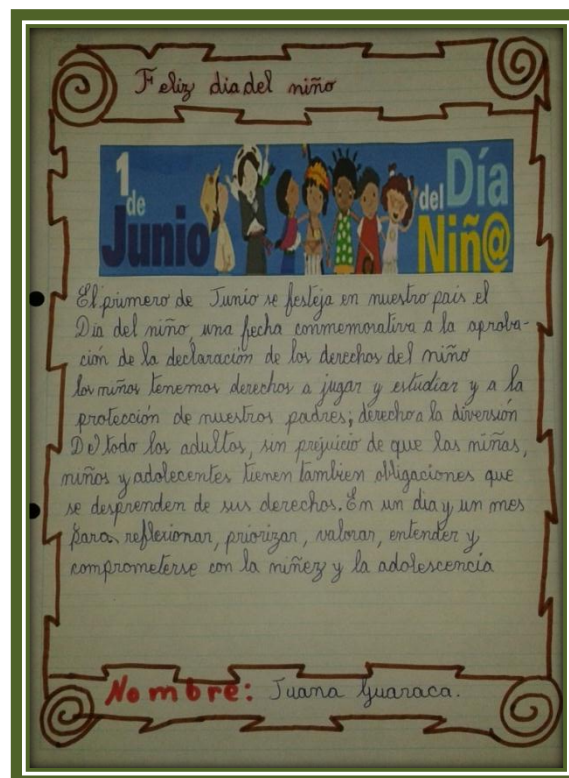 Feliz dia del niño
1 de Junio del Día Niñ@
El primero de Junio se festeja en nuestro pais el
Día del niño, una fecha conmemorativa a la aproba-
ción de la declaración de los derechos del niño
los niños tenemos derechos a jugar y estudiar y a la
protección de nuestros padres; derecho a la diversión
De todo los adultos, sin prejuicio de que las niñas,
niños y adolecentes tienen tambien obligaciones que
se desprenden de sus derechos. En un dia y un mes
para reflexionar, priorizar, valorar, entender y
comprometerse con la niñez y la adolescencia
Nombre: Juana Guaraca.